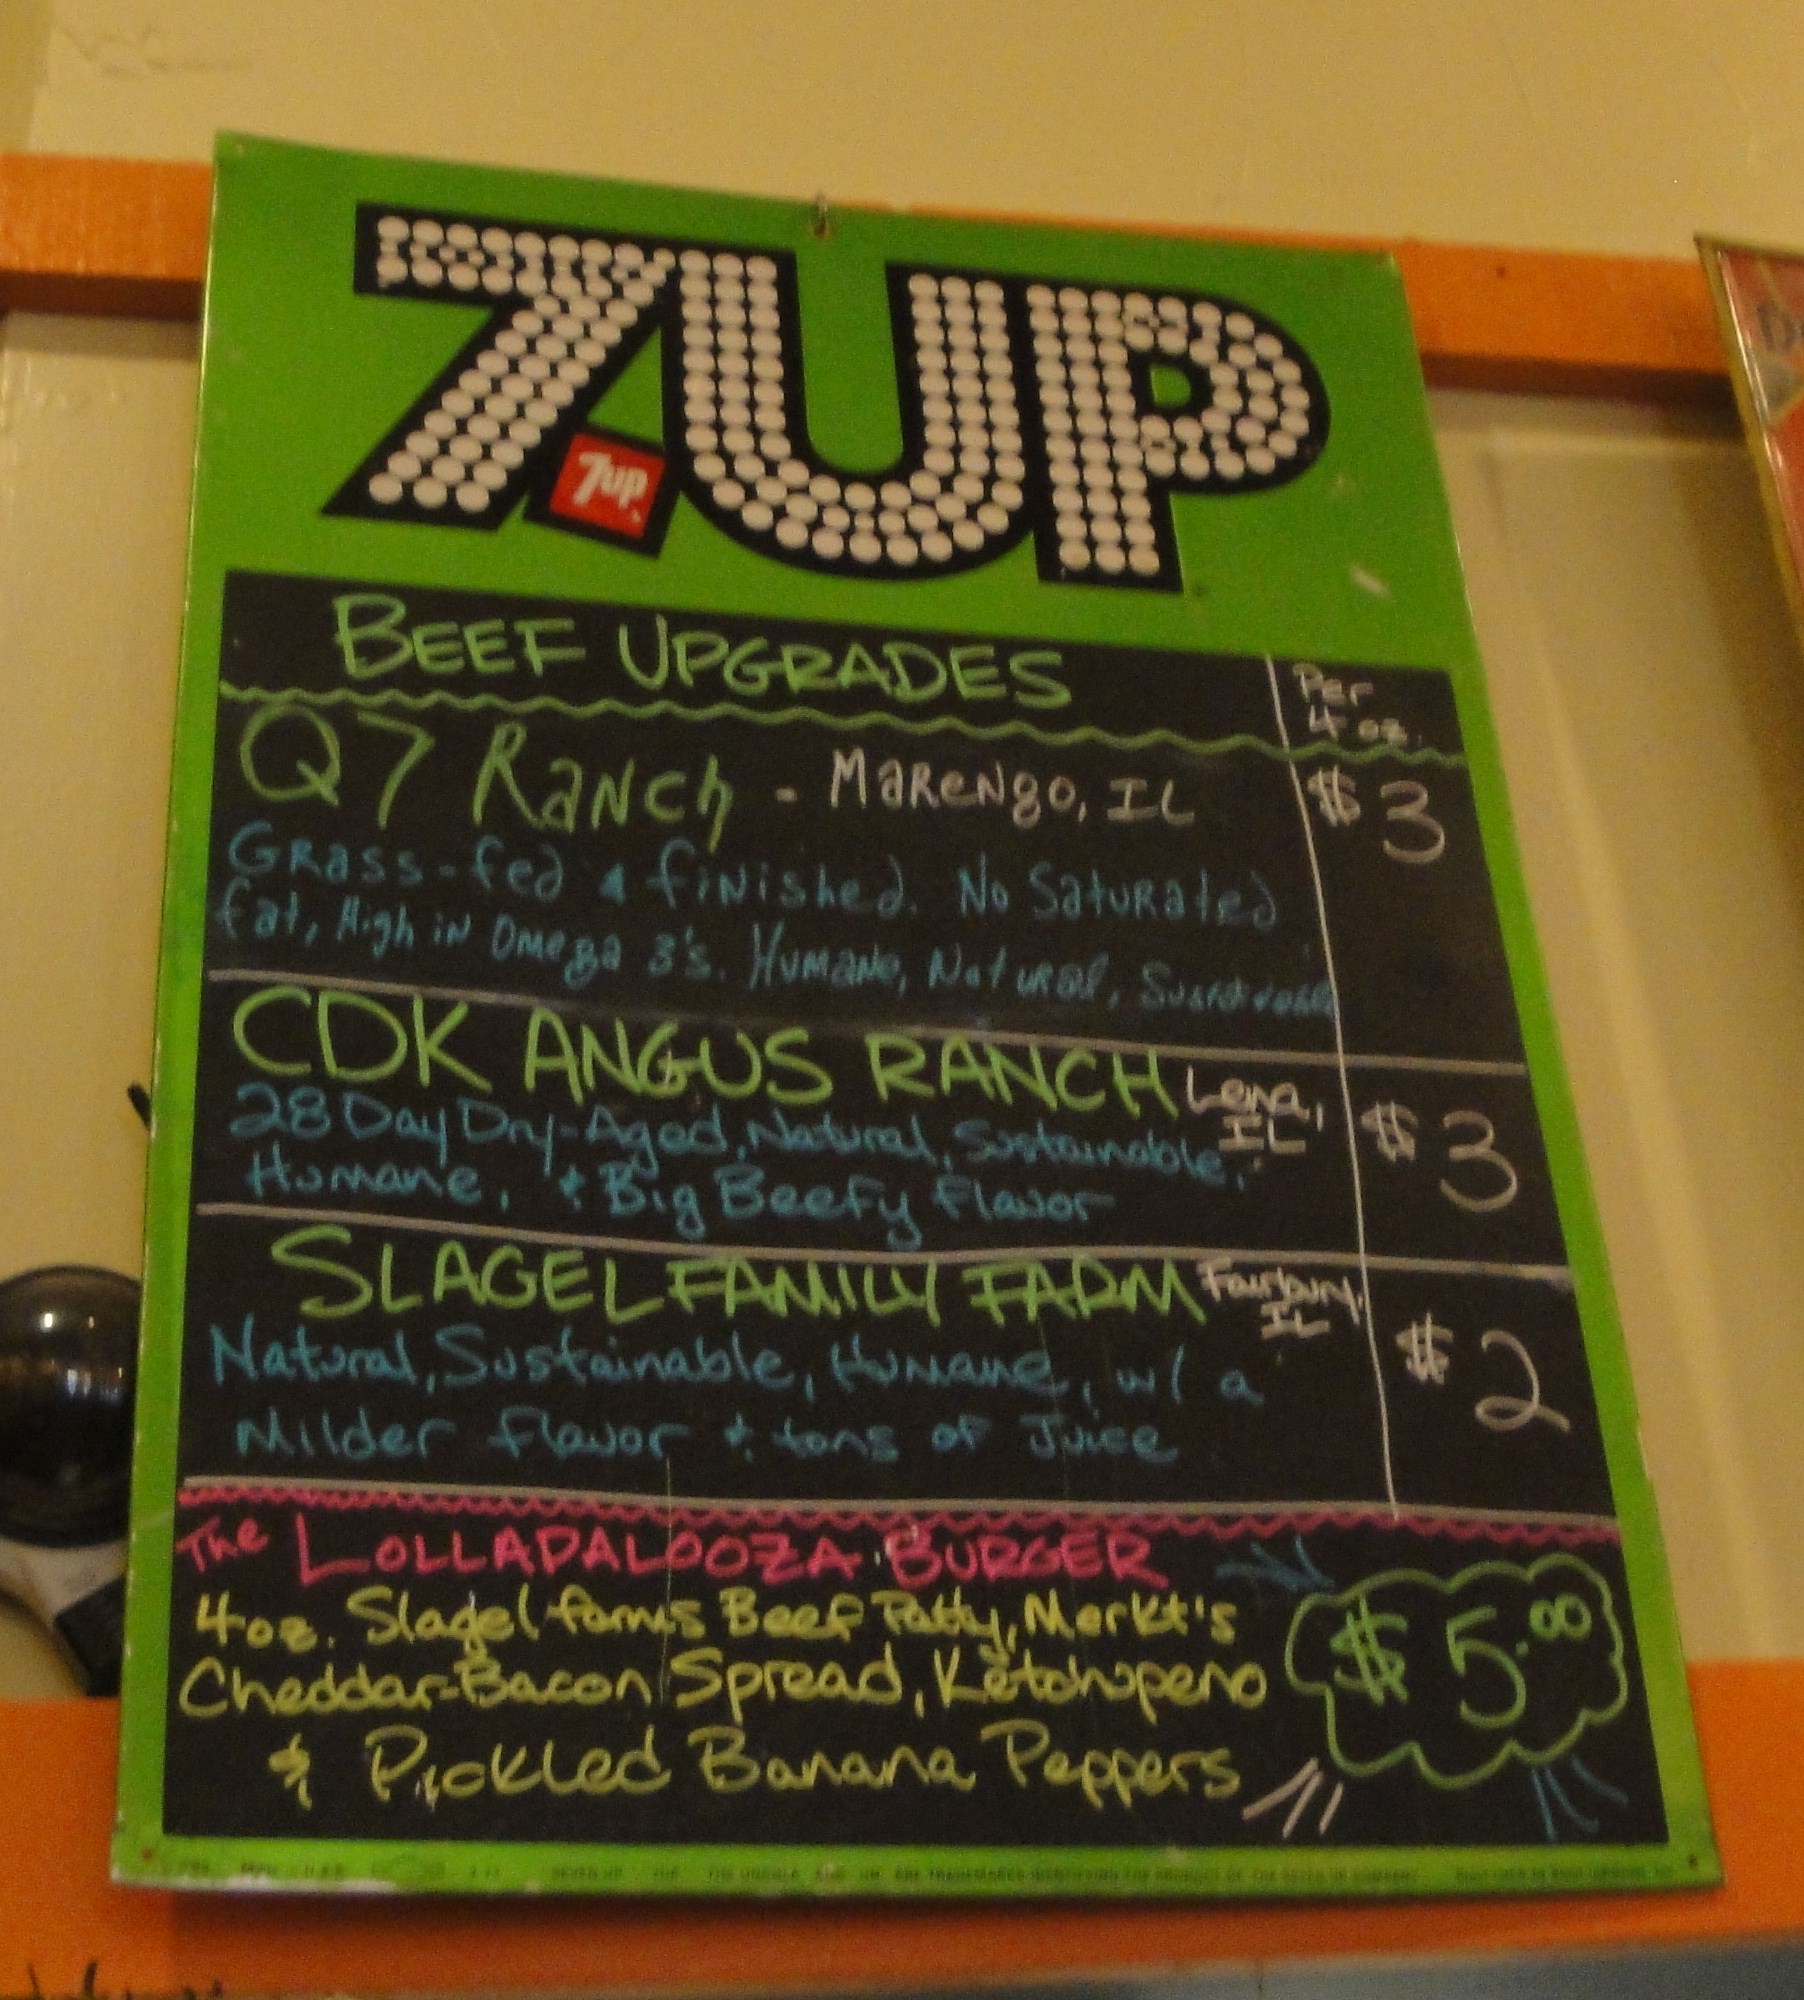 7UP
7up
BEEF UPGRADES
Per
4 oz.
Q7 Ranch - Marengo, IL
$3
Grass-fed & finished. No Saturated
fat, High in Omega 3's. Humane, Natural, Sustainable
CDK ANGUS RANCH Lena,
IL
$3
28 Day Dry-Aged, Natural, Sustainable,
Humane, & Big Beefy Flavor
SLAGEL FAMILY FARM Fairbury,
IL
$2
Natural, Sustainable, Humane, w/ a
Milder flavor & tons of Juice
The LOLLAPALOOZA BURGER
4oz. Slagel farms Beef Patty, Merkt's
Cheddar-Bacon Spread, Ketchupeno
& Pickled Banana Peppers
$5.00